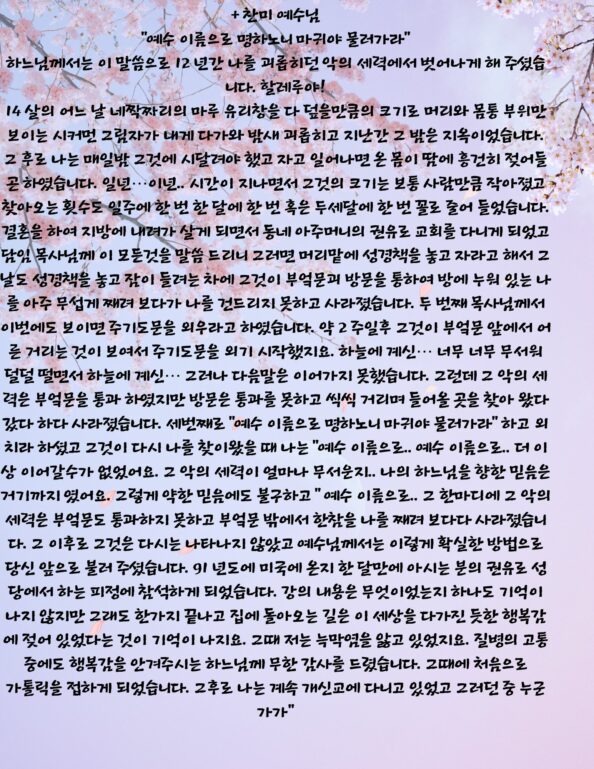 + 찬미 예수님
"예수 이름으로 명하노니 마귀야 물러가라"
하느님께서는 이 말씀으로 12 년간 나를 괴롭히던 악의 세력에서 벗어나게 해 주셨습
니다. 할레루야!
14 살의 어느 날 네짝짜리의 마루 유리창을 다 덮을만큼의 크기로 머리와 몸통 부위만
보이는 시커먼 그림자가 내게 다가와 밤새 괴롭히고 지난간 그 밤은 지옥이었습니다.
그 후로 나는 매일밤 그것에 시달려야 했고 자고 일어나면 온 몸이 땀에 흥건히 젖어들
곤 하였습니다. 일년…이년.. 시간이 지나면서 그것의 크기는 보통 사람만큼 작아졌고
찾아오는 횟수도 일주에 한 번 한 달에 한 번 혹은 두세달에 한 번 꼴로 줄어 들었습니다.
결혼을 하여 지방에 내려가 살게 되면서 동네 아주머니의 권유로 교회를 다니게 되었고
담임 목사님께 이 모든것을 말씀 드리니 그러면 머리맡에 성경책을 놓고 자라고 해서 그
날도 성경책을 놓고 잠이 들려는 차에 그것이 부엌문괴 방문을 통하여 방에 누워 있는 나
를 아주 무섭게 째려 보다가 나를 건드리지 못하고 사라졌습니다. 두 번째 목사님께서
이번에도 보이면 주기도문을 외우라고 하였습니다. 약 2 주일후 그것이 부엌문 앞에서 어
른 거리는 것이 보여서 주기도문을 외기 시작했지요. 하늘에 계신… 너무 너무 무서워
덜덜 떨면서 하늘에 계신… 그러나 다음말은 이어가지 못했습니다. 그런데 그 악의 세
력은 부엌문을 통과 하였지만 방문은 통과를 못하고 씩씩 거리며 들어올 곳을 찾아 왔다
갔다 하다 사라졌습니다. 세번째로 "예수 이름으로 명하노니 마귀야 물러가라" 하고 외
치라 하셨고 그것이 다시 나를 찾이왔을 때 나는 "예수 이름으로.. 예수 이름으로.. 더 이
상 이어갈수가 없었어요. 그 악의 세력이 얼마나 무서운지.. 나의 하느님을 향한 믿음은
거기까지 였어요. 그렇게 약한 믿음에도 불구하고 " 예수 이름으로.. 그 한마디에 그 악의
세력은 부엌문도 통과하지 못하고 부엌문 밖에서 한참을 나를 째려 보다다 사라졌습니
다. 그 이후로 그것은 다시는 나타나지 않았고 예수님께서는 이렇게 확실한 방법으로
당신 앞으로 불러 주셨습니다. 91 년도에 미국에 온지 한 달만에 아시는 분의 권유로 성
당에서 하는 피정에 참석하게 되었습니다. 강의 내용은 무엇이었는지 하나도 기억이
나지 않지만 그래도 한가지 끝나고 집에 돌아오는 길은 이 세상을 다가진 듯한 행복감
에 젖어 있었다는 것이 기억이 나지요. 그때 저는 늑막염을 앓고 있었지요. 질병의 고통
중에도 행복감을 안겨주시는 하느님께 무한 감사를 드렸습니다. 그때에 처음으로
가톨릭을 접하게 되었습니다. 그후로 나는 계속 개신교에 다니고 있었고 그러던 중 누군
가가"